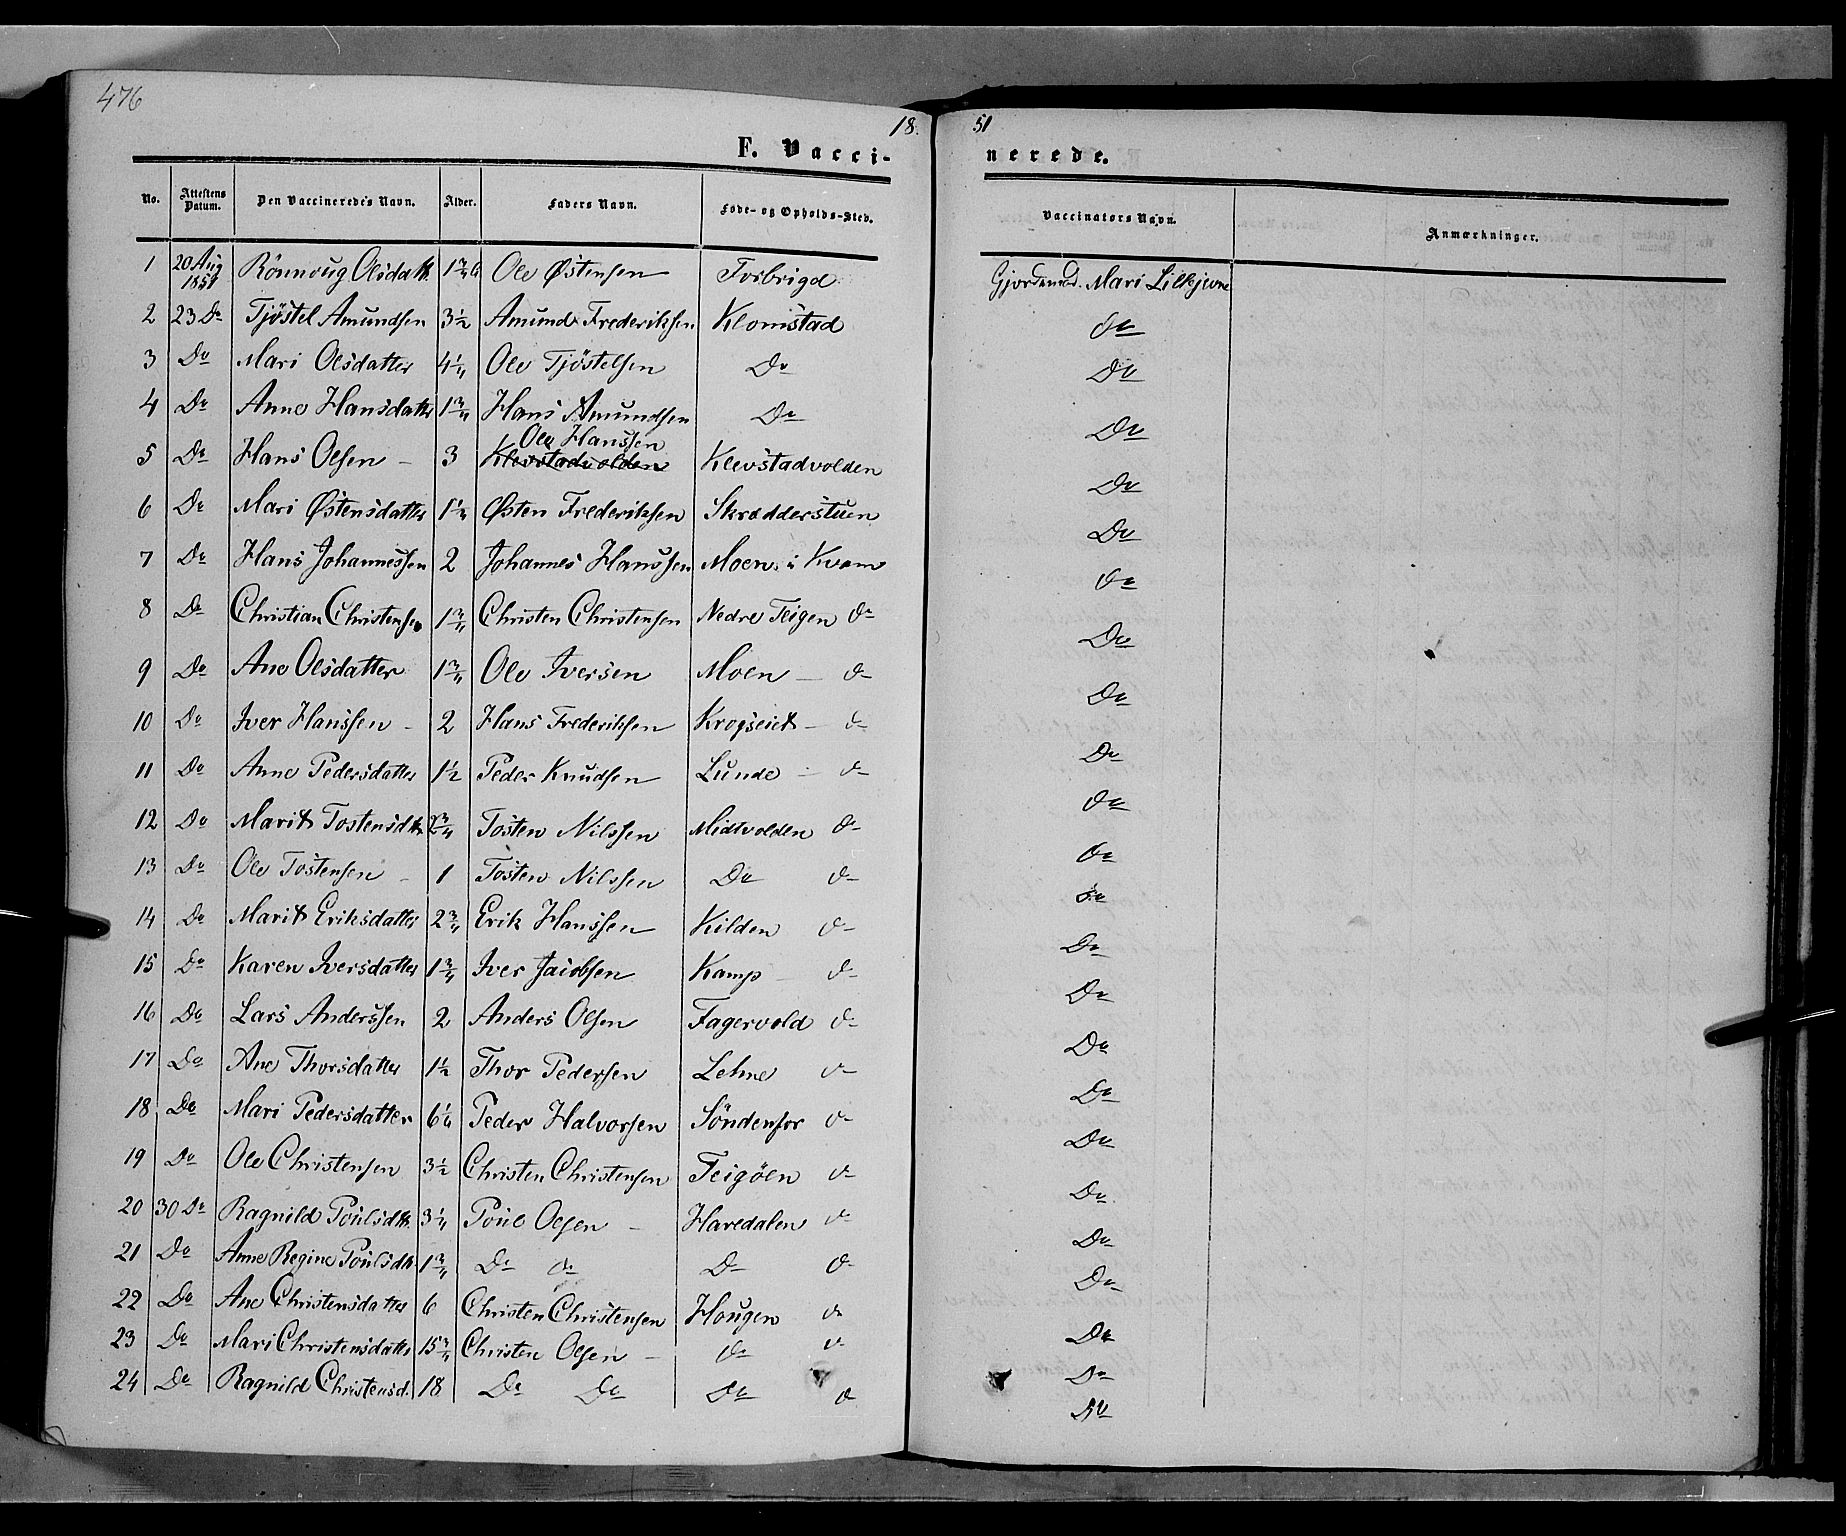 476
18 51
F. Vaccinerede.
No. Attestens Datum. Den Vaccineredes Navn. Alder. Faders Navn. Føde- og Opholds-Sted. Vaccinators Navn. Anmærkninger.
1 20 Aug 1851 Rönnoug Olsdatt. 1 3/4 Ole Østensen Gjordemod. Mari Lillejevne
2 23 Do Tjøstel Amundsen 3 1/2 Amund Frederiksen Klomstad Do
3 Do Mari Olsdatter 4 1/4 Ole Tjøstelsen Do Do
4 Do Anne Hansdatter 1 3/4 Hans Amundsen Do Do
5 Do Hans Olsen - 3 Klevstadvolden Ole Hanssen Klevstadvolden Do
6 Do Mari Østensdatter Østen Frederiksen Skrædderstuen Do
7 Do Hans Johannessen 2 Johannes Hanssen Moen i Kvam Do
8 Do Christian Christensen 1 3/4 Christen Christensen Nedre Teigen do Do
9 Do Ane Olsdatter 1 3/4 Ole Iversen Moen - do Do
10 Do Iver Hanssen - 2 Hans Frederiksen Krogseiet - do Do
11 Do Anne Pedersdatter 1 1/2 Peder Knudsen Lunde - do Do
12 Do Marit Tostensdtt. 2 3/4 Tosten Nilssen Midtvolden do Do
13 Do Ole Tostensen - 1 Tosten Nilssen Do do Do
14 Do Marit Eriksdatter 2 3/4 Erik Hanssen Kilden do Do
15 Do Karen Iversdatter 1 3/4 Iver Jacobsen Kamp - do Do
16 Do Lars Anderssen 2 Anders Olsen Fagervold do Do
17 Do Ane Thorsdatter 1 1/2 Thor Pedersen Lehne do Do
18 Do Mari Pedersdatter 6 1/4 Peder Halvorsen Söndenfor do Do
19 Do Ole Christensen 3 1/2 Christen Christensen Teigöen do Do
20 30 Do Ragnild Poulsdtt. 3 1/4 Poul Olsen - Haredalen do Do
21 Do Anne Regine Poulsdtt. 1 3/4 Do do Do do Do
22 Do Ane Christensdatter 6 Christen Christensen Hougen do Do
23 Do Mari Christensdatter 15 3/4 Christen Olsen - do do Do
24 Do Ragnild Christensd. 18 Do Do Do do Do